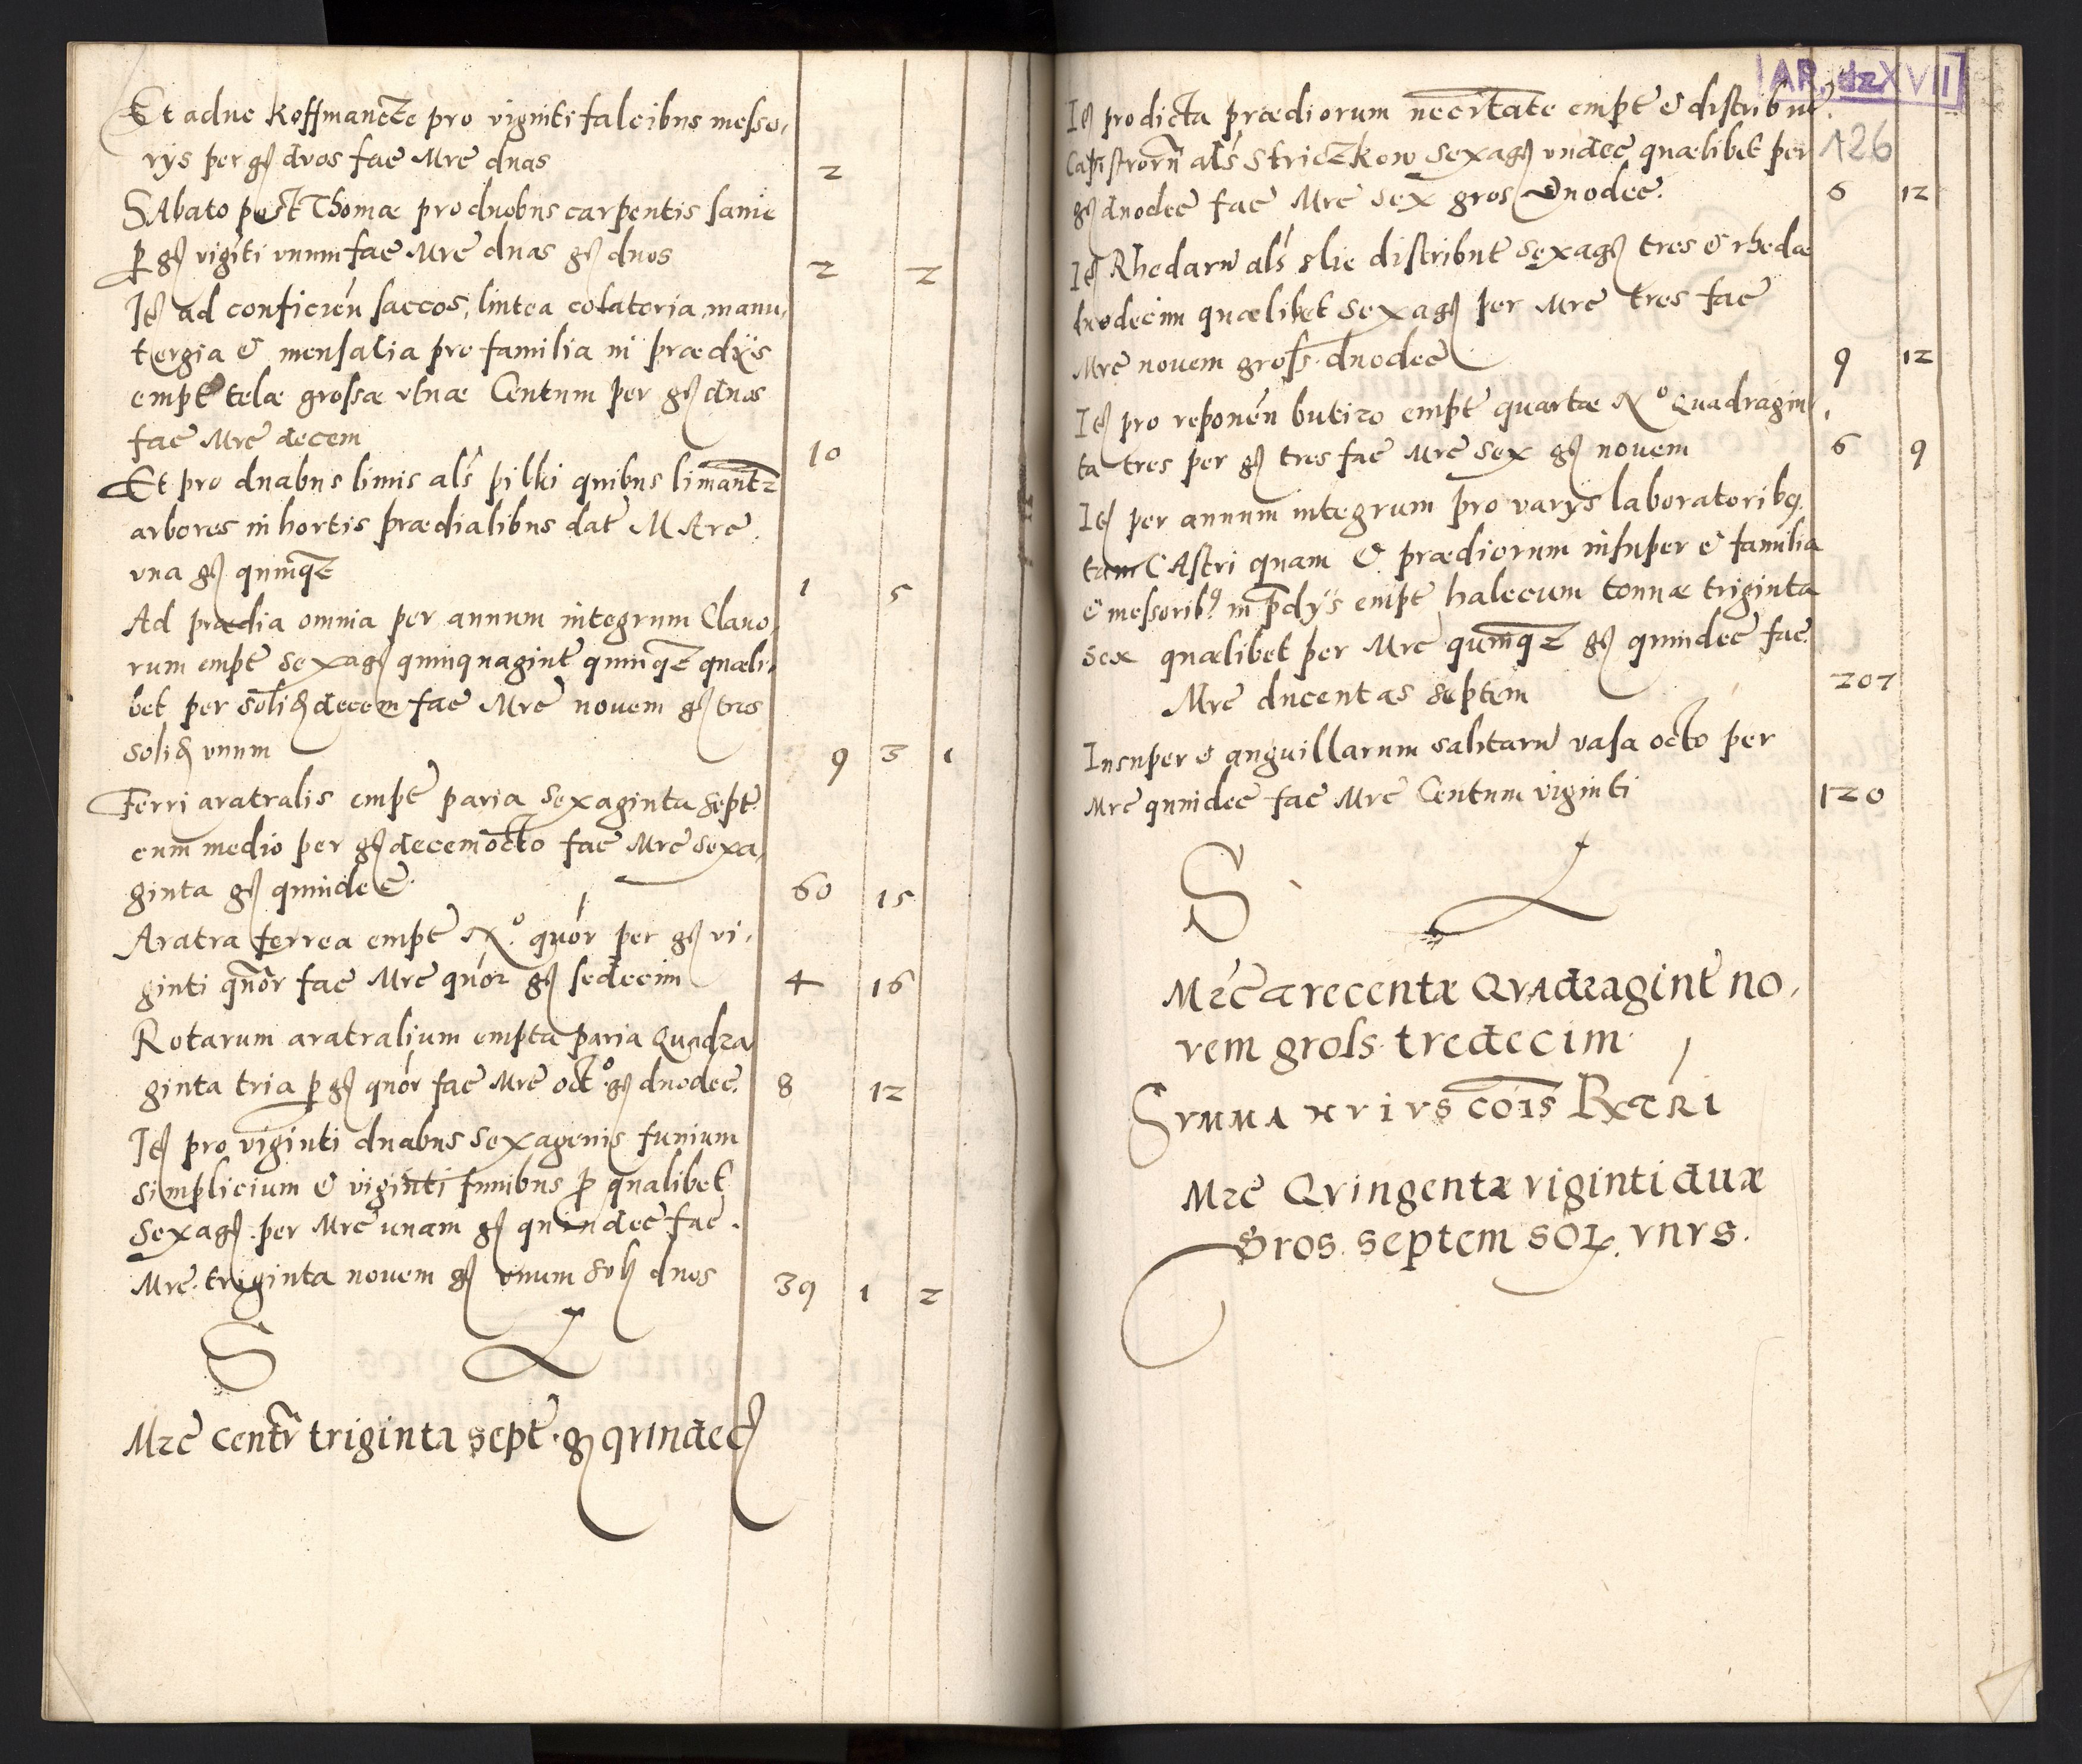 Et adhuc Koffmanczce pro viginti falcibus messo,
rys per gs duos fac Mrc duas 2
SAbato post Thomæ pro duobus carpentis fanie
p gs vigiti unum fac Mrc duas gs duos 2 2
Ite ad conficien saccos, lintea colatoria, manu,
tergia & mensalia pro familia in prædiis
empt telæ grossæ ulnæ Centum per gs duos
fac Mrc decem 10
Et pro duabus limis als pilki quibus limantr
arbores in hortis prædialibus dat MArc.
una gs quinqz 1 5
Ad prædia omnia per annum integrum Clavo,
rum empt sexags quinquagint quinqz quæli,
bet per solid decem fac Mrc novem gs tres
solid unum 9 3 1
Ferri aratralis empt paria sexaginta sept
cum medio per gs decemocto fac Mrc sexa,
ginta gs quindec 60 15
Aratra ferrea empt No. quor per gs vi,
ginti quor fac Mrc quor gs sedecim 4 16
Rotarum aratralium empta paria Quadra
ginta tria p gs quor fac Mrc octo gs duodec. 8 12
Ite pro viginti duabus sexagenis funium
simplicium & viginti funibus p qualibet
sexags. per Mrc unam gs quindec fac.
Mrc. triginta novem gs unum solid duos 39 1 2
S L
Mrc centu triginta sept. gs quindec
AR. dz XVII
Ite pro dicta prædiorum necitate empt & distribut.
126
Capistroru als Striczkow sexags undec quælibet per
gs duodec fac Mrc sex gros duodec. 6 12
Ite Rhedaru als slie distribut sexags tres & rhedæ
duodecim quælibet sexags per Mrc tres fac
Mrc novem gross. duodec 9 12
Ite pro reponen butiro empt quartæ No Quadragin,
ta tres per gs tres fac Mrc sex gs novem 6 9
Ite per annum integrum pro varys laboratoribq.
tam CAstri quam & prædiorum insuper & familia
& messoribq in pdys empt halecum tonnæ triginta
sex quælibet per Mrc quinqz gs quindec fac.
Mrc ducentas septem 207
Insuper & anguillarum salitaru vasa octo per
Mrc quindec fac Mrc Centum viginti 120
S L
Mrc trecentæ Quadragint no,
vem gross. tredecim.
Summa huius cois Extri
Mrc Quingentæ viginti duæ
Gros. septem sol. unus.